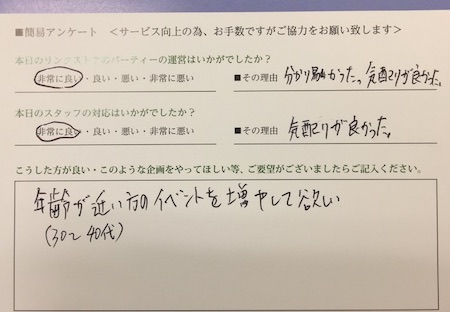 ■簡易アンケート ＜サービス向上の為、お手数ですがご協力をお願い致します＞
本日のリンクストアのパーティーの運営はいかがでしたか？
非常に良い・良い・悪い・非常に悪い ■その理由 分かり易かった。気配りが良かった。
本日のスタッフの対応はいかがでしたか？
非常に良い・良い・悪い・非常に悪い ■その理由 気配りが良かった。
こうした方が良い・このような企画をやってほしい等、ご要望がございましたらご記入ください。
年齢が近い方のイベントを増やして欲しい
(30〜40代)